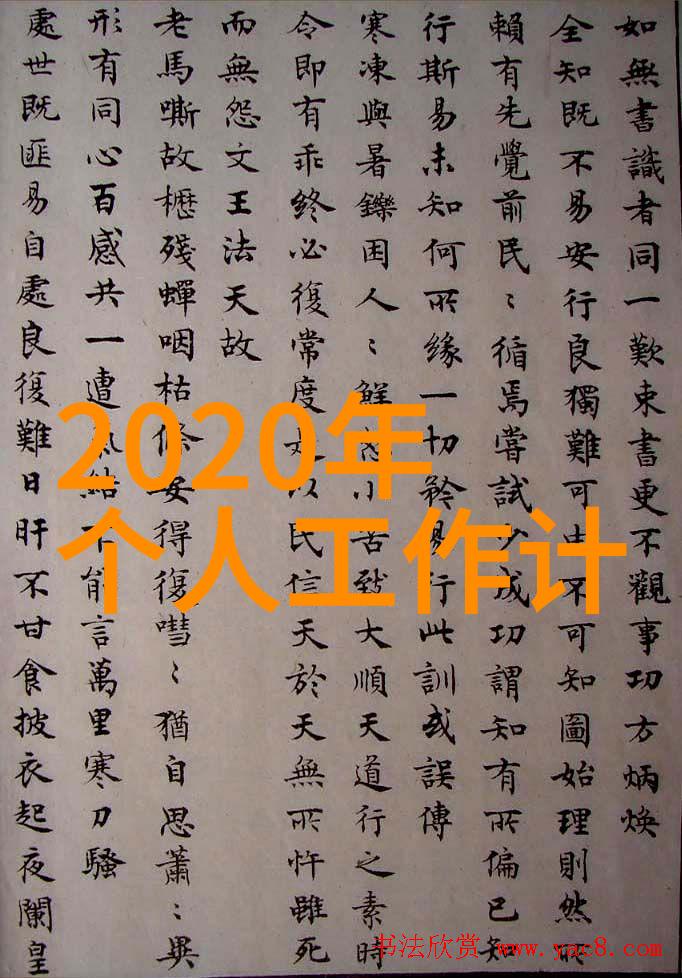 如無書識者同一歎束書更不觀事功方炳煥
全知既不易安行良獨難可由不可知圖始理則然所
賴有先覺前民〻循焉嘗試以成功謂知有所偏已知
行斯易未知何所緣一切矜易行此訓或誤傳
寒凍與暑鑠困人〻鮮小苦致大順天道行之素時
令即有乖終必復常度是以民信天於天無所忤雖死
而無怨文王法天故
老馬嘶故櫪殘蟬咽枯條安得復嘒〻猶自思蕭〻異
形有同心百感共一遭氣結不能言萬里寒刀騷
處世既匪易自處良復難日旰不甘食披衣起夜闌皇
2020年
个人工作计
书法欣赏 www.yac8.com